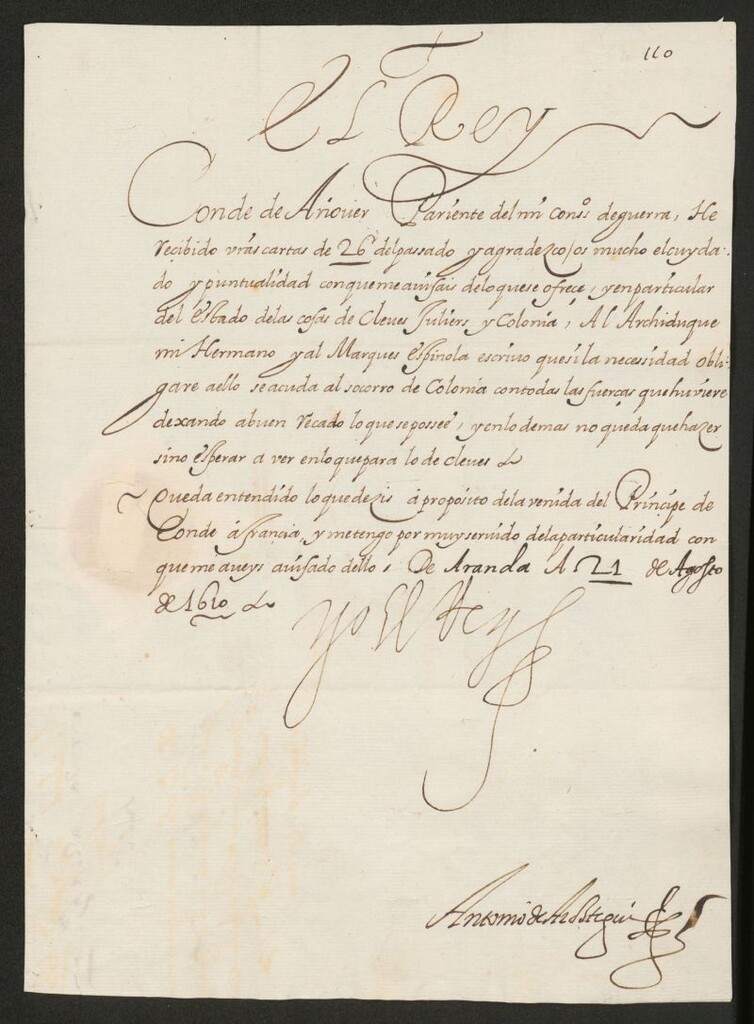 110
El Rey
Conde de Añover Pariente del mi cons.º de guerra, He
recibido vras cartas de 26 del passado y agradezcoos mucho el cuyda-
do y puntualidad con que me auisais de lo que se ofrece, y en particular
del estado de las cosas de Cleues Juliers y Colonia, Al Archiduque
mi Hermano y al Marques espinola escriuo que si la necessidad obli-
gare a ello se acuda al socorro de Colonia con todas las fuerças que huuiere
dexando a buen recado lo que se posseé, y en lo demas no queda que hazer
sino esperar a ver en lo que para lo de cleues
Queda entendido lo que dezis á proposito de la venida del Príncipe de
Conde á francia, y me tengo por muy seruido de la particularidad con
que me aueys auisado dello, De Aranda A 21 de Agosto
de 1610
Yo El Rey
Antonio de Aroztegui